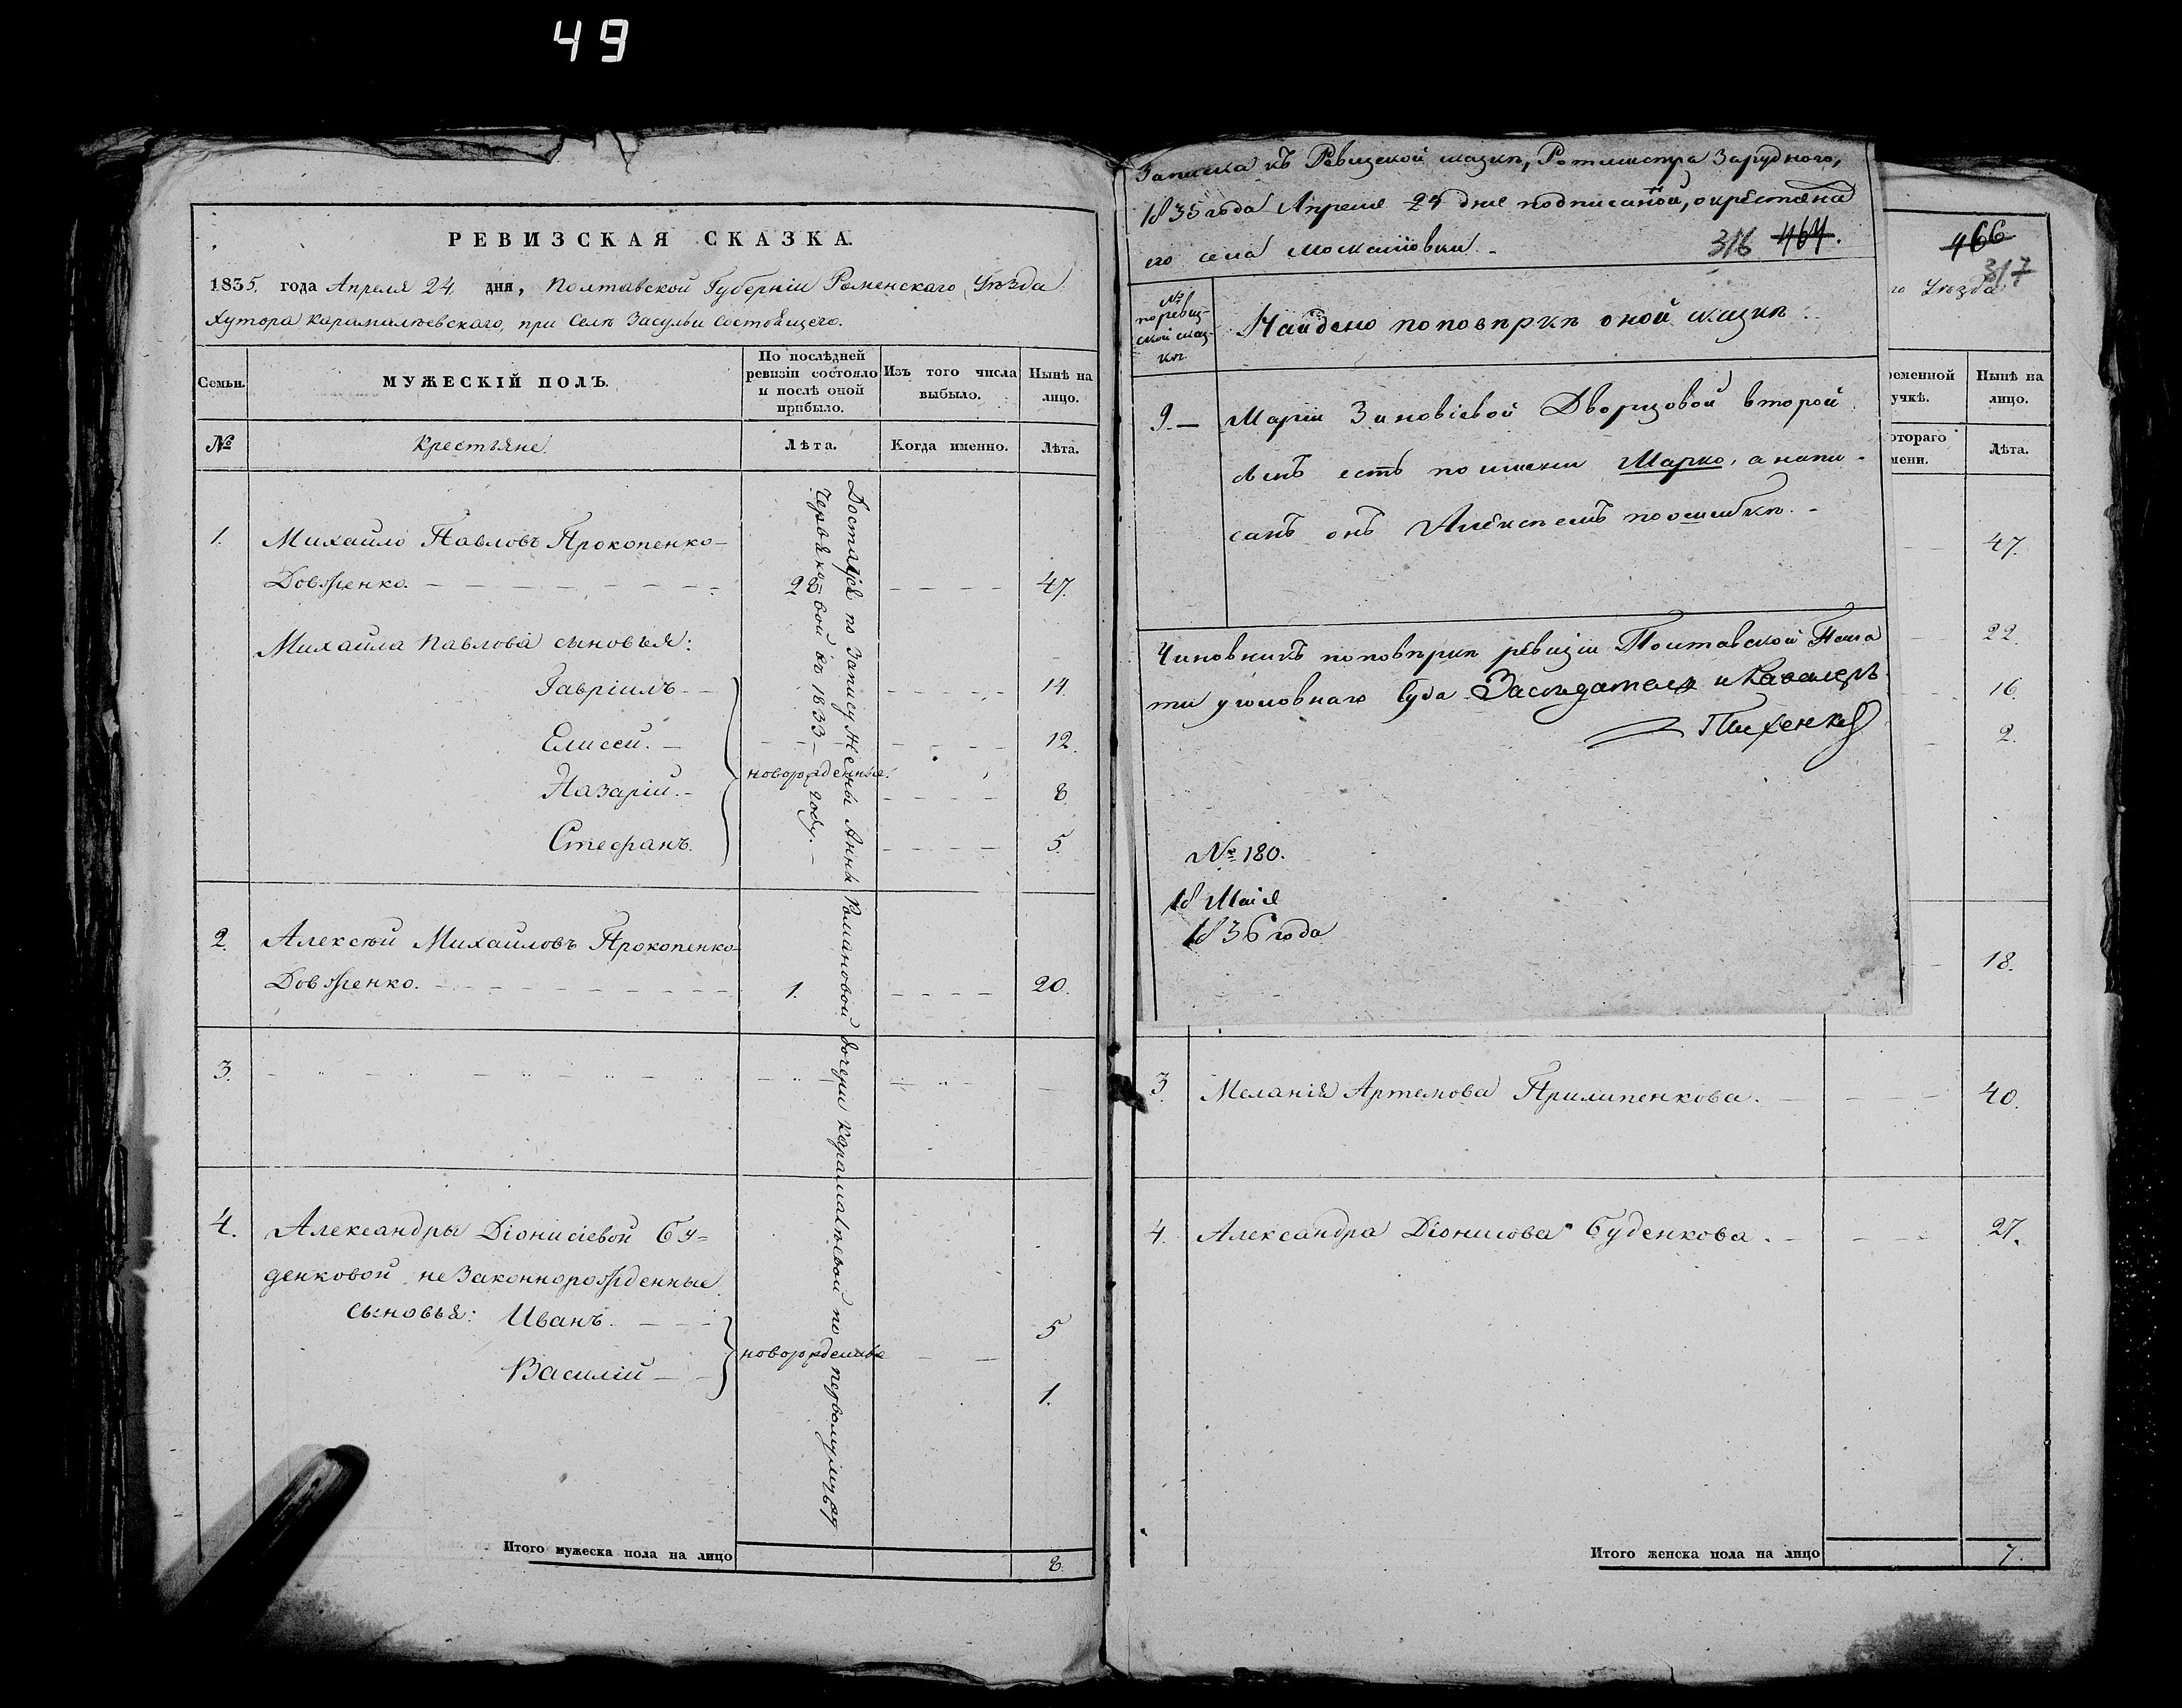 49
РЕВИЗСКАЯ СКАЗКА.
1835. года Апреля 24. дня, Полтавской Губерніи Роменскаго Уѣзда
Хутора Карамалѣевскаго, при Селѣ Засульи состоящего.
Семьи.
МУЖЕСКІЙ ПОЛЪ.
По послѣдней ревизіи состояло и послѣ оной прибыло.
Изъ того числа выбыло.
Нынѣ на лицо.
№
Крестьяне.
Лѣта.
Когда именно.
Лѣта.
Достался по Запису Жены Анны Романовой дочери Карамалѣевой по первому мужу
Червяковой въ 1833 году.
1. Михайло Павловъ Прокопенко-
Довженко. 28 47.
Михайла Павлова сыновья:
Гавріилъ 14.
Елисей. 12.
новорожденные.
Назарій. 8
Стефанъ. 5.
2. Алексѣй Михайловъ Прокопенко-
Довженко. 1. 20.
3.
4. Александры Діонисіевой Бу=
денковой незаконнорожденные
сыновья: Иванъ. 5
новорожденные
Василій 1.
Итого мужеска пола на лицо 8.
Записка къ Ревизской сказкѣ, Ротмистра Зарудного,
1835 года Апреля 24 дня подписаной, о крестьяна
его села Москалiовки.
316 464.
№ по ревиз-
ской сказ-
кѣ.
Найдено по повѣркѣ оной сказки.
9. Маріи Зиновіевой Дворцовой второй
сынъ есть по имени Марко, а напи-
санъ онъ Алексѣемъ по ошибкѣ.
Чиновникъ по повѣркѣ ревизіи Полтавской Пала
ты уголовнаго Суда Засѣдатель и Кавалеръ
№ 180.
18 Маія
1836 года
466
317
го Уѣзда
ременной
учкѣ.
Нынѣ на лицо.
отораго
мени.
Лѣта.
47.
22.
16.
2.
18.
3. Меланія Артемова Прилипенкова. 40.
4. Александра Діонисова Буденкова. 27.
Итого женска пола на лицо 7.